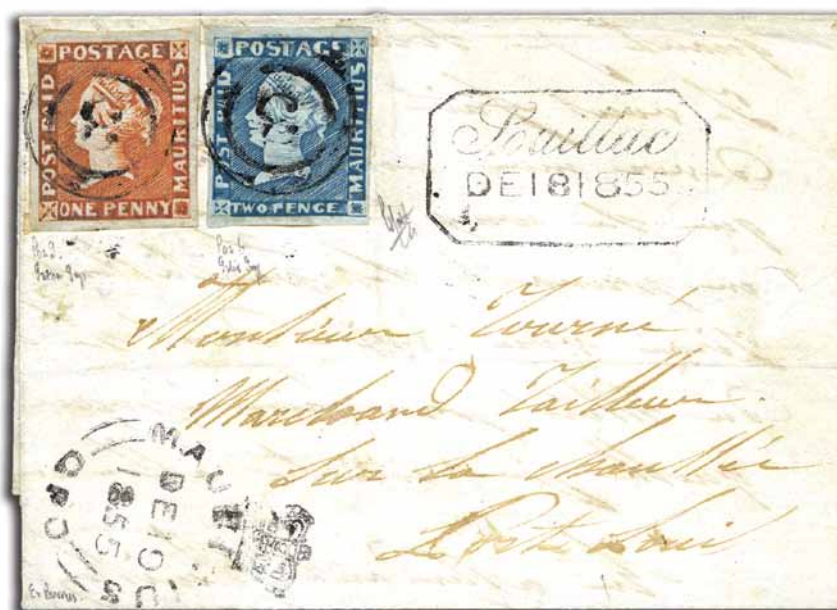 POSTAGE
POST PAID
MAURITIUS
ONE PENNY
POSTAGE
POST PAID
MAURITIUS
TWO PENCE
Souillac
DE 18 1855
Monsieur Tourné
Marchand Tailleur
Sur la chaussée
Port Loui
MAURITIUS
DE 19
1855
GPO